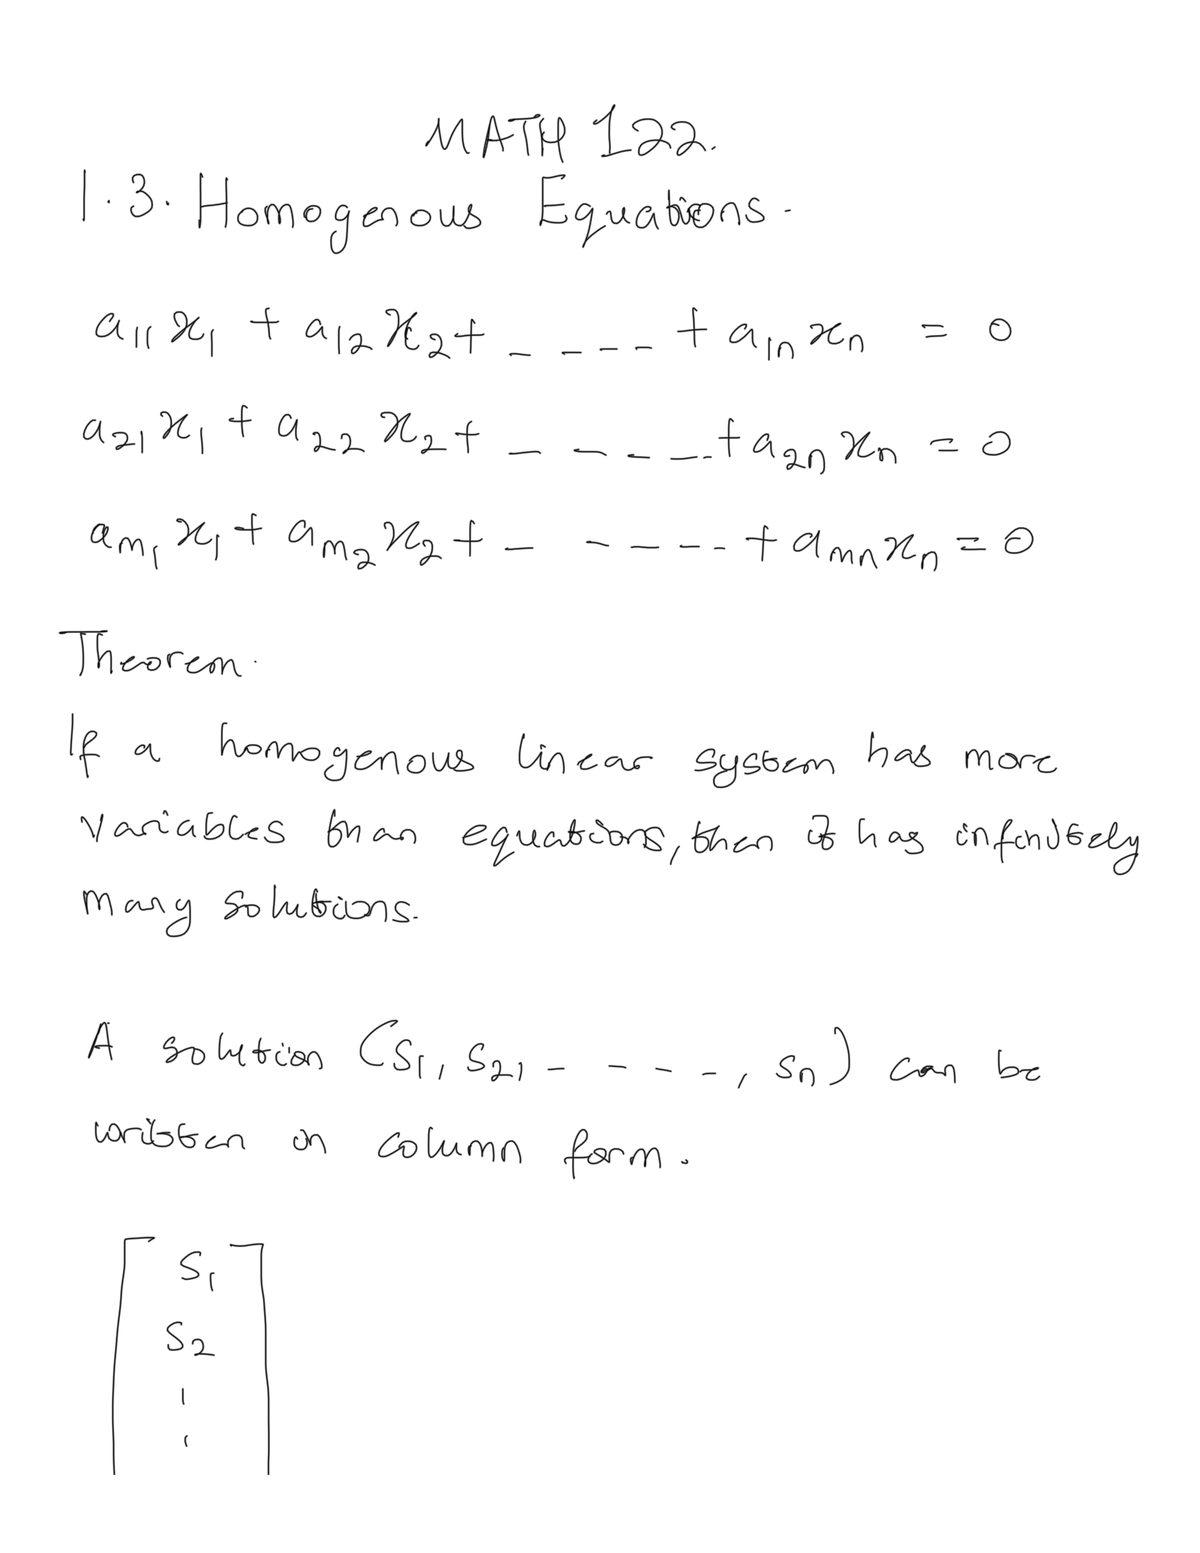 MATH 122.
1.3. Homogenous Equations.
a11 x1 + a12 x2 + _ _ _ _ _ + a1n xn = 0
a21 x1 + a22 x2 + _ _ _ _ _ + a2n xn = 0
am1 x1 + am2 x2 + _ _ _ _ _ + amn xn = 0
Theorem.
If a homogenous linear system has more
variables than equations, then it has infinitely
many solutions.
A solution (s1, s2, - - - - -, sn) can be
written in column form.
s1
s2